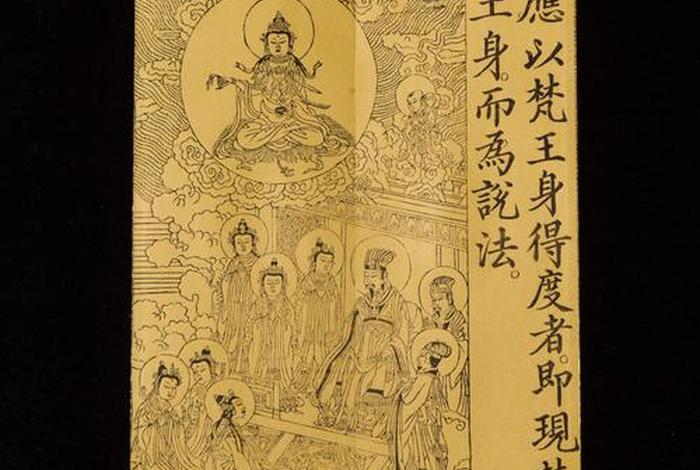 應以梵王身得度者。即現
王身。而為說法。